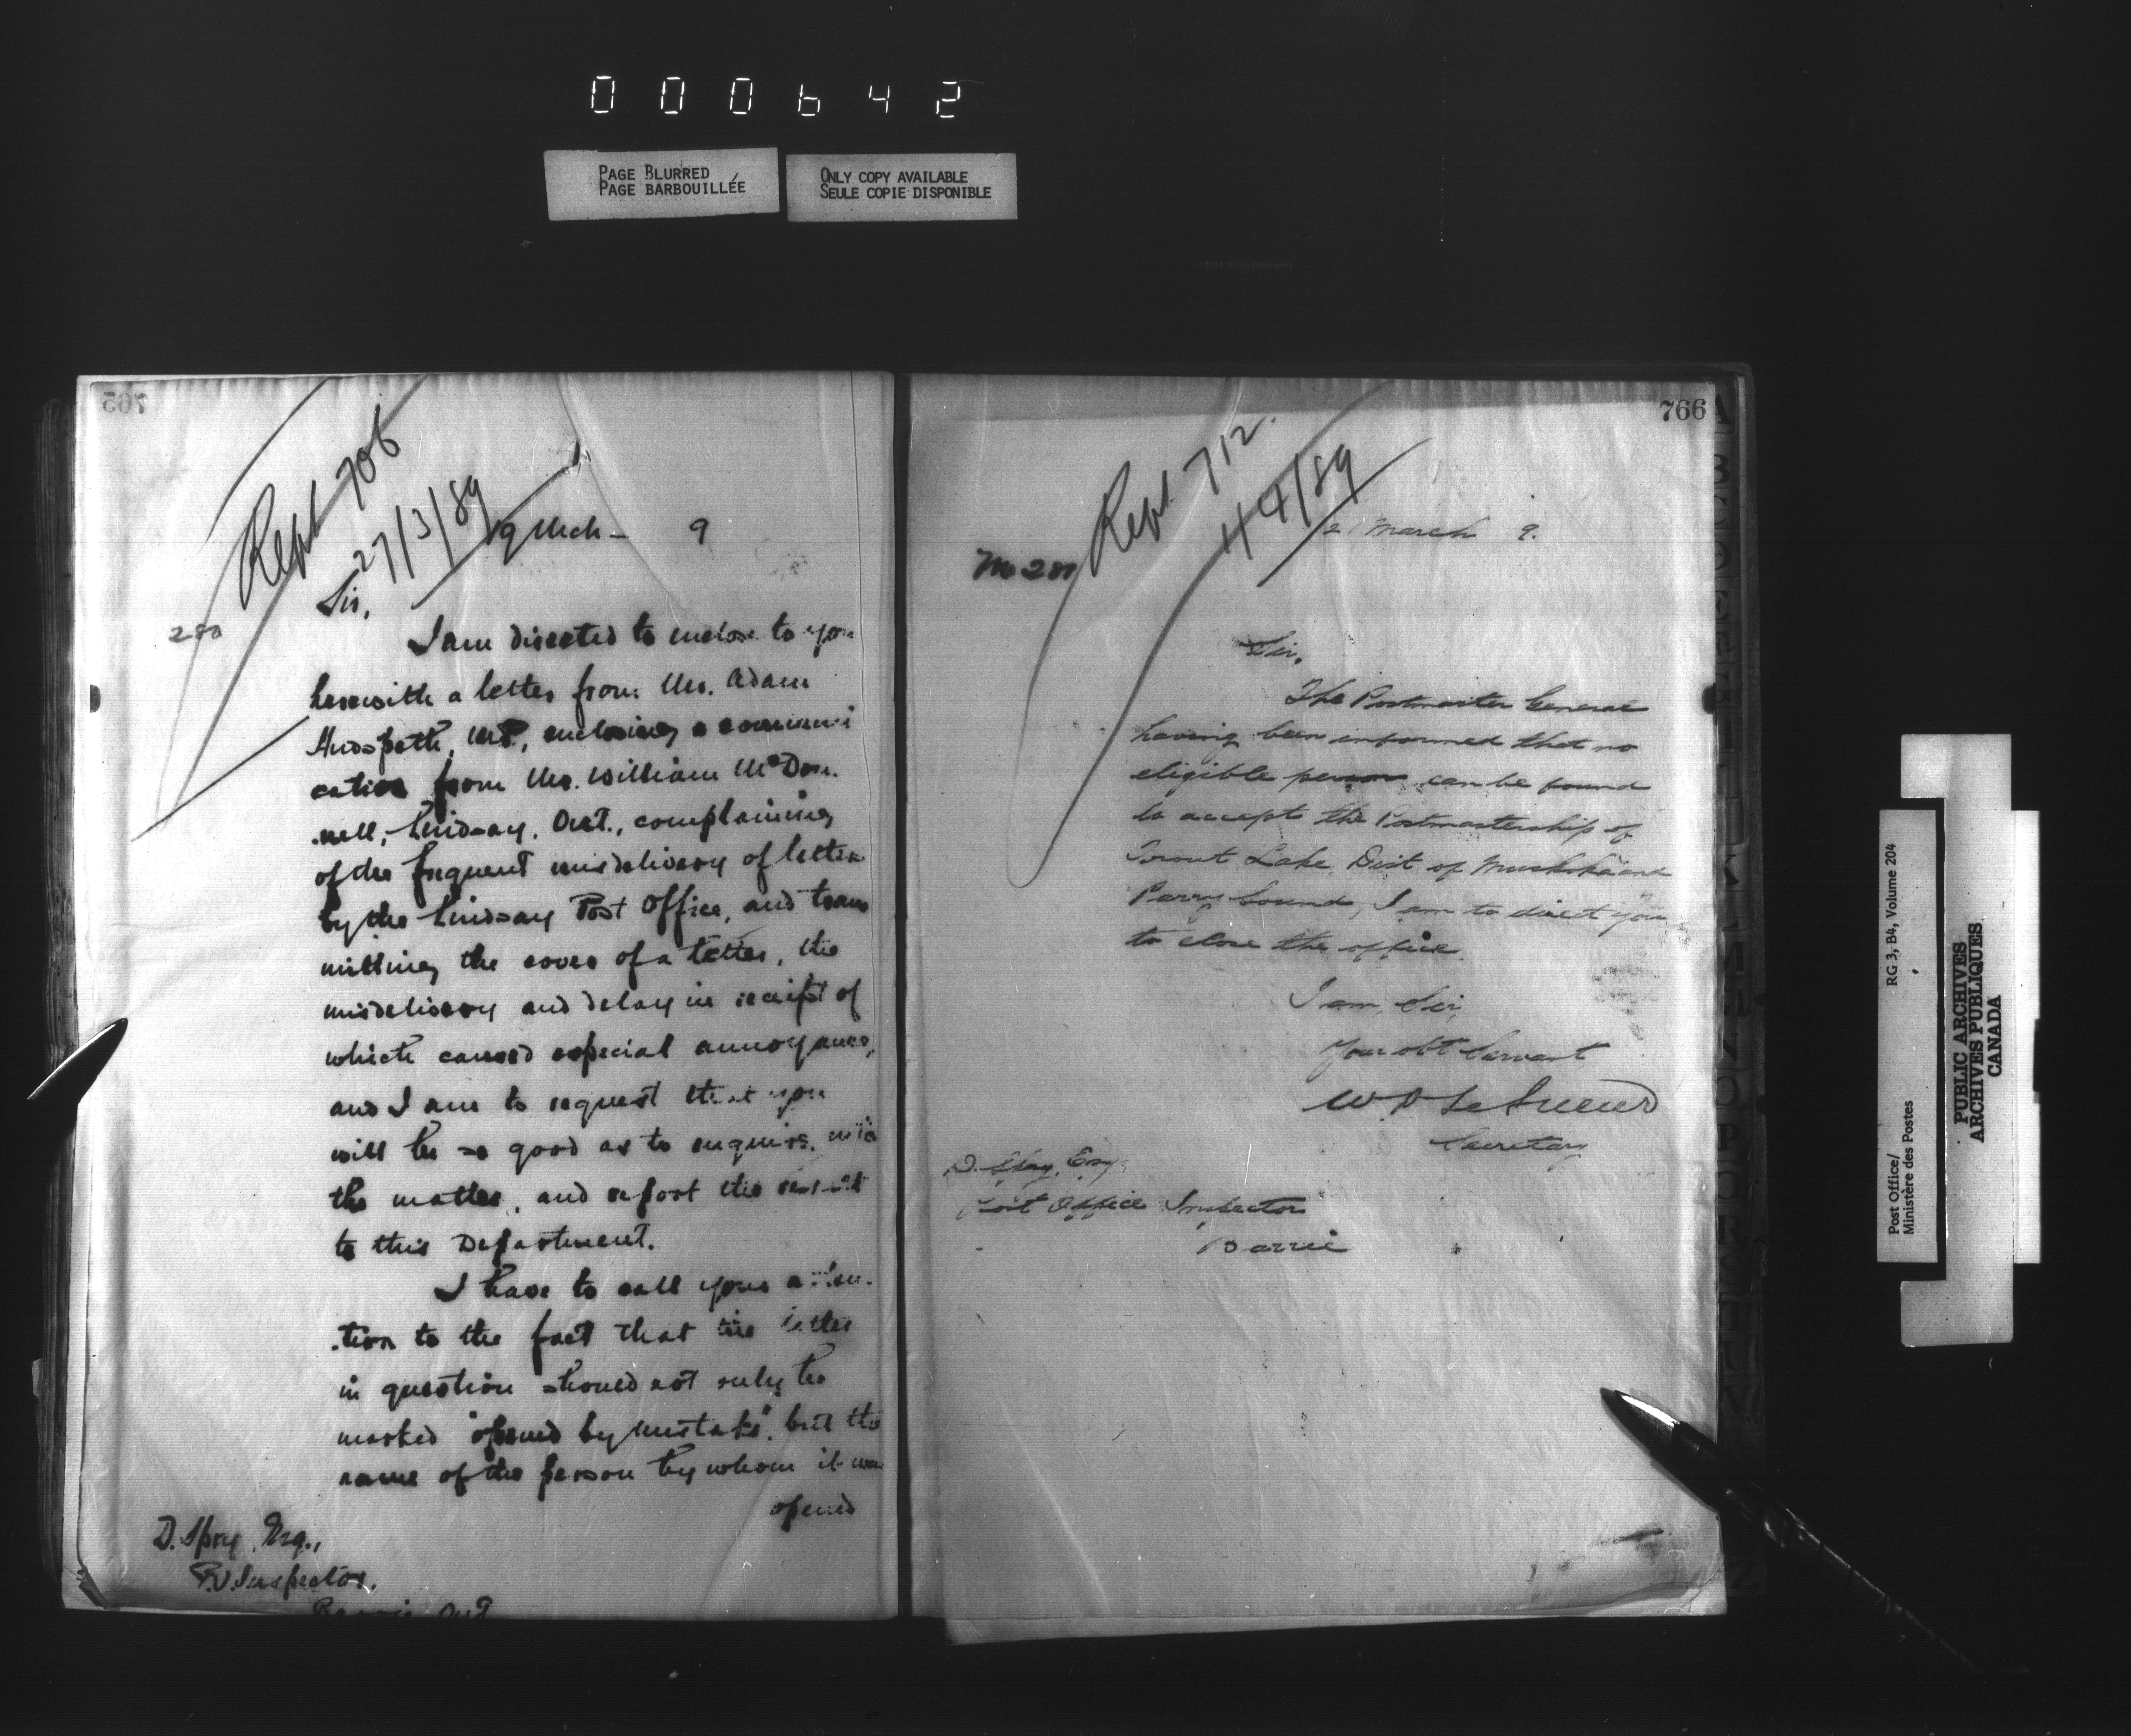 000642
PAGE BLURRED
PAGE BARBOUILLÉE
ONLY COPY AVAILABLE
SEULE COPIE DISPONIBLE
765
Rept 706
27/3/89
19 Mch - 9
Sir,
I am directed to enclose to you
herewith a letter from Mr. Adam
Hudspeth, M.P., enclosing a communi
cation from Mr. William McDon.
.nell, Lindsay, Ont., complaining
of the frequent misdelivery of letters
by the Lindsay Post Office, and trans
mitting the cover of a letter, the
misdelivery and delay in receipt of
which caused especial annoyance,
and I am to request that you
will be so good as to enquire into
the matter, and report the result
to this Department.
I have to call your atten-
.tion to the fact that the letter
in question should not only be
marked "opened by mistake", but the
name of the person by whom it was
opened
D. Spry, Esq.,
P.O. Inspector,
Barrie, Ont.
766
Rept. 712.
4/89
21 March 9.
Sir,
The Postmaster General
having been informed that no
eligible person can be found
to accept the Postmastership of
Trout Lake, Dist of Muskoka and
Parry Sound, I am to direct you
to close the office.
I am, Sir,
Your obt Servant
W D LeSueur
Secretary
D. Spry, Esq.
Post Office Inspector
Barrie
Post Office/
Ministère des Postes
RG 3, B4, Volume 204
PUBLIC ARCHIVES
ARCHIVES PUBLIQUES
CANADA